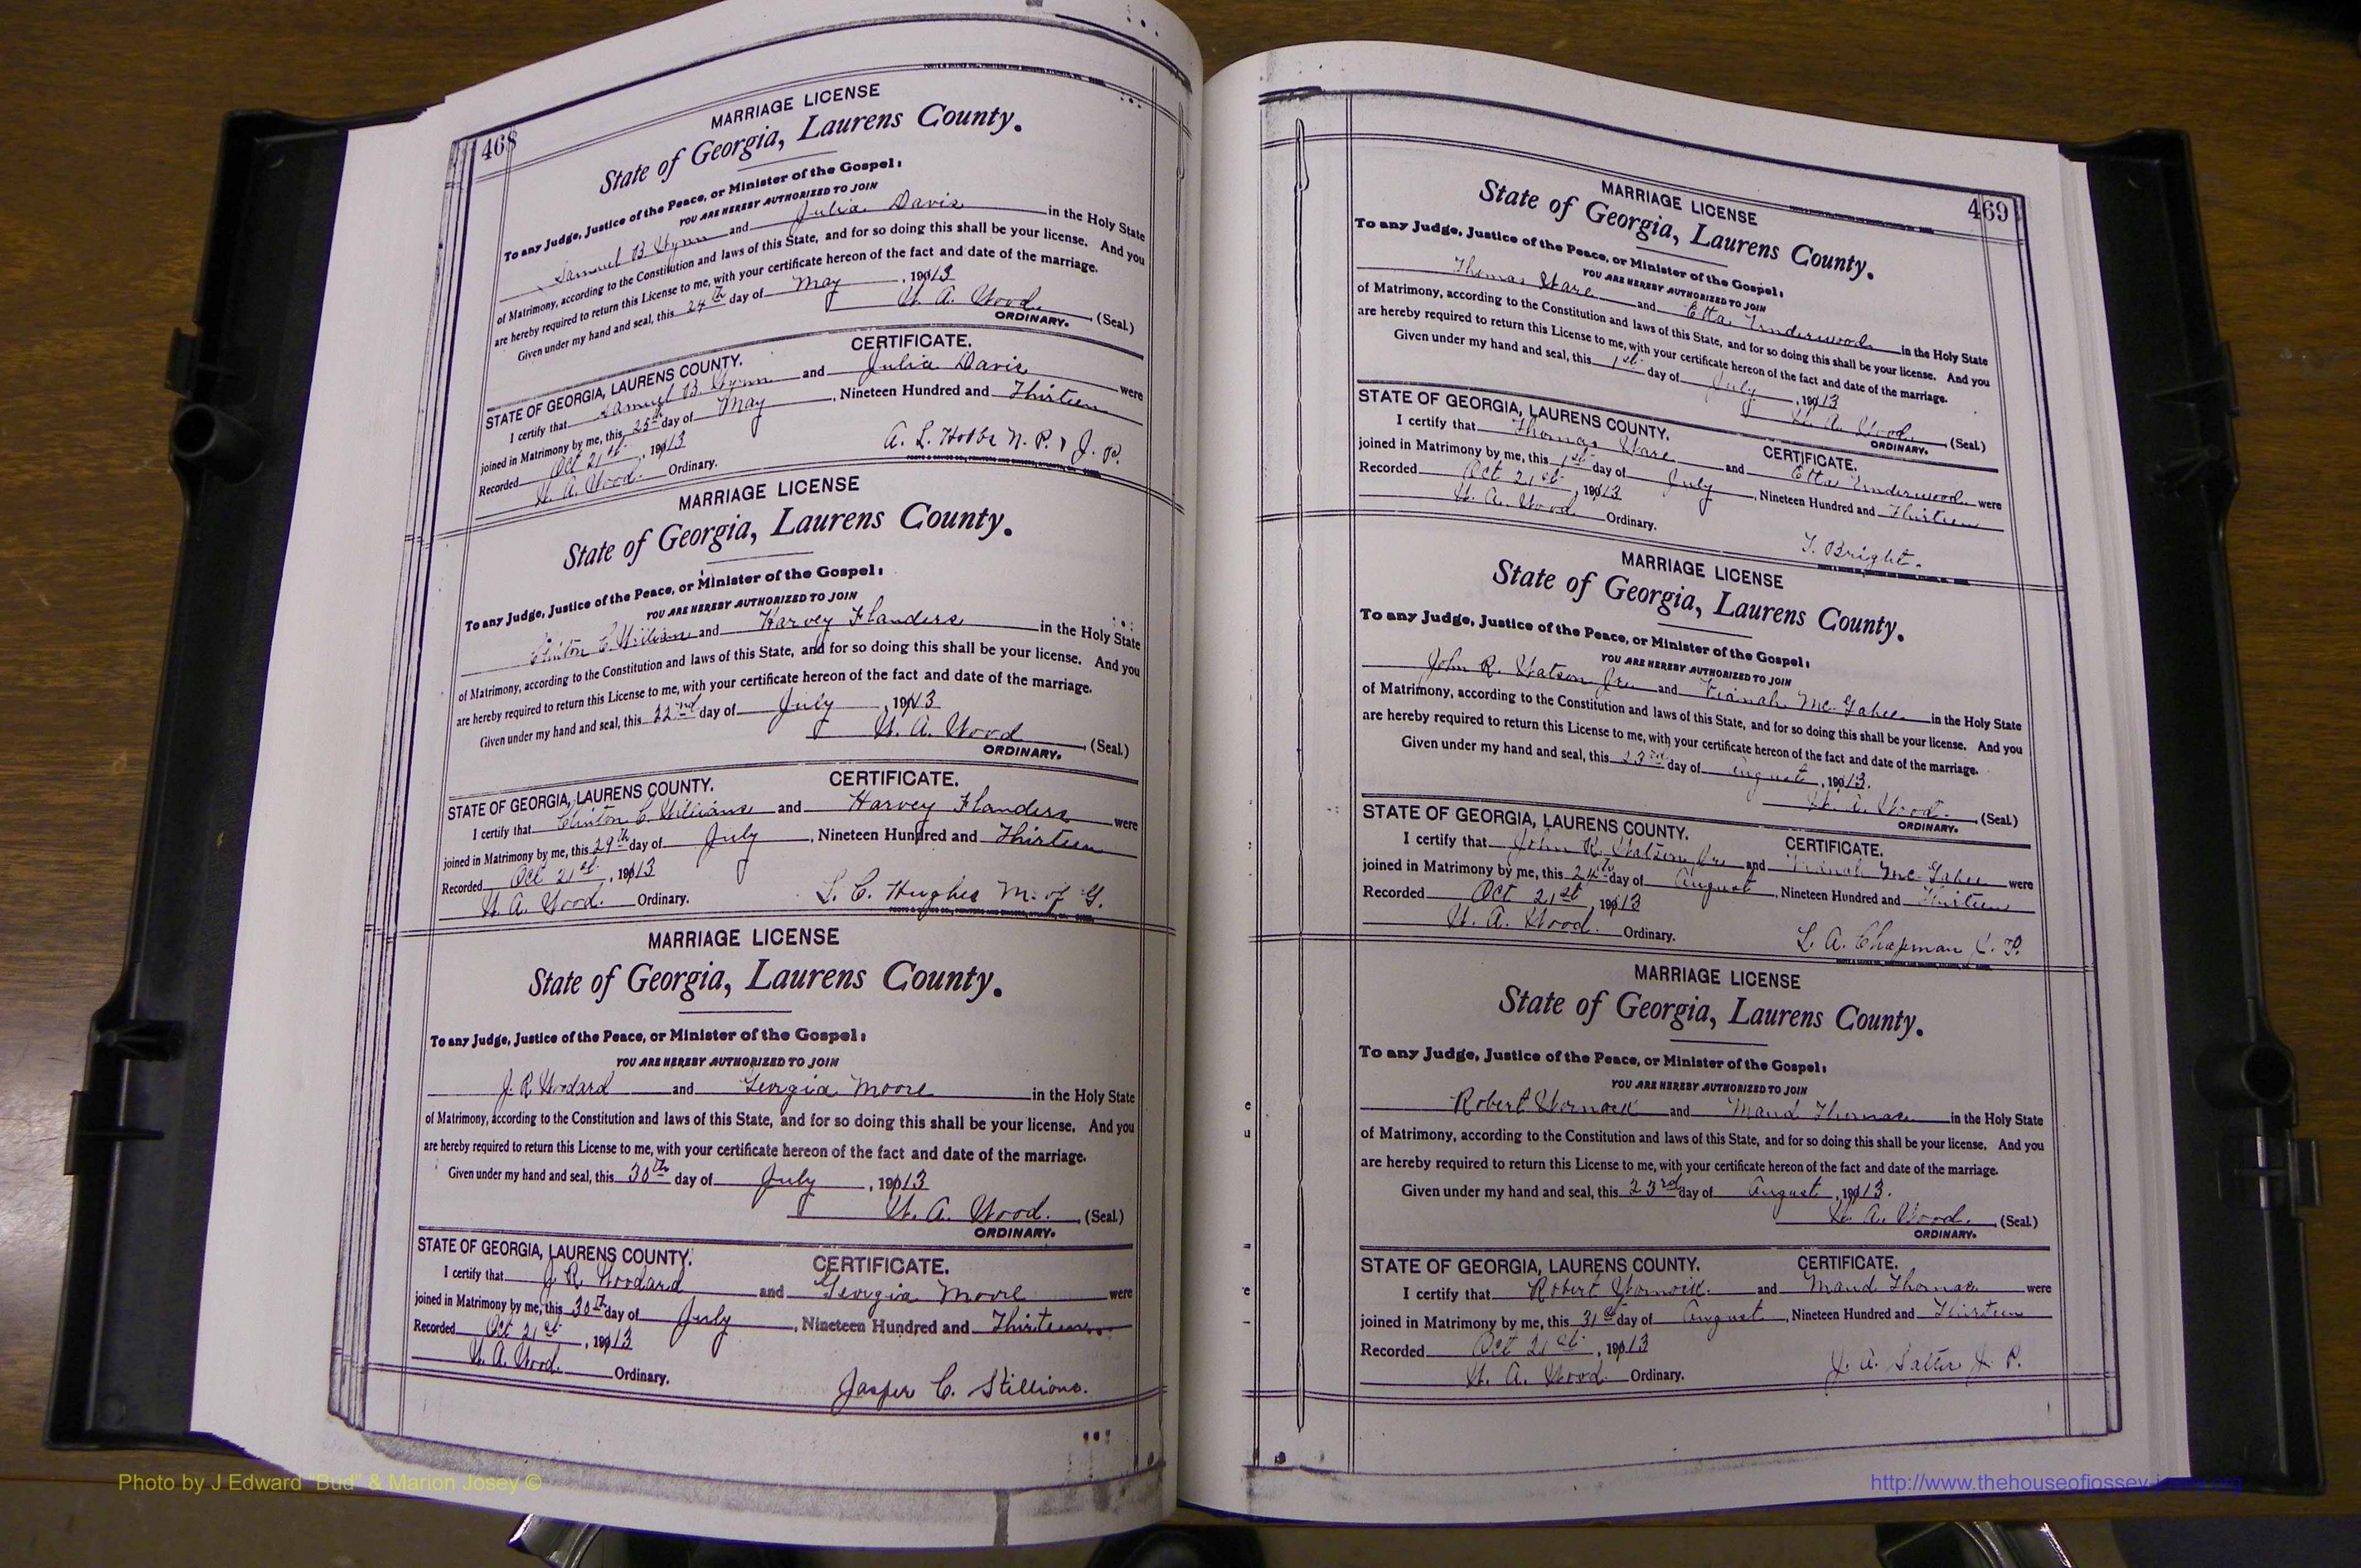 468
MARRIAGE LICENSE
State of Georgia, Laurens County.
To any Judge, Justice of the Peace, or Minister of the Gospel:
YOU ARE HEREBY AUTHORIZED TO JOIN
Samuel B Wynn and Julia Davis in the Holy State
of Matrimony, according to the Constitution and laws of this State, and for so doing this shall be your license. And you
are hereby required to return this License to me, with your certificate hereon of the fact and date of the marriage.
Given under my hand and seal, this 24th day of May, 1913
W. A. Wood (Seal.)
ORDINARY.
STATE OF GEORGIA, LAURENS COUNTY. CERTIFICATE.
I certify that Samuel B Wynn and Julia Davis were
joined in Matrimony by me, this 25th day of May, Nineteen Hundred and Thirteen
Recorded Oct 21st, 1913
W. A. Wood. Ordinary.
A. L. Hobbs N. P. & J. P.
MARRIAGE LICENSE
State of Georgia, Laurens County.
To any Judge, Justice of the Peace, or Minister of the Gospel:
YOU ARE HEREBY AUTHORIZED TO JOIN
Clinton C. Williams and Harvey Flanders in the Holy State
of Matrimony, according to the Constitution and laws of this State, and for so doing this shall be your license. And you
are hereby required to return this License to me, with your certificate hereon of the fact and date of the marriage.
Given under my hand and seal, this 22nd day of July, 1913
W. A. Wood (Seal.)
ORDINARY.
STATE OF GEORGIA, LAURENS COUNTY. CERTIFICATE.
I certify that Clinton C. Williams and Harvey Flanders were
joined in Matrimony by me, this 29th day of July, Nineteen Hundred and Thirteen
Recorded Oct 21st, 1913
W. A. Wood. Ordinary.
L. C. Hughes M. of G.
MARRIAGE LICENSE
State of Georgia, Laurens County.
To any Judge, Justice of the Peace, or Minister of the Gospel:
YOU ARE HEREBY AUTHORIZED TO JOIN
J. R. Woodard and Georgia Moore in the Holy State
of Matrimony, according to the Constitution and laws of this State, and for so doing this shall be your license. And you
are hereby required to return this License to me, with your certificate hereon of the fact and date of the marriage.
Given under my hand and seal, this 30th day of July, 1913
W. A. Wood. (Seal.)
ORDINARY.
STATE OF GEORGIA, LAURENS COUNTY. CERTIFICATE.
I certify that J. R. Woodard and Georgia Moore were
joined in Matrimony by me, this 30th day of July, Nineteen Hundred and Thirteen
Recorded Oct 21st, 1913
W. A. Wood. Ordinary.
Jasper C.
469
MARRIAGE LICENSE
State of Georgia, Laurens County.
To any Judge, Justice of the Peace, or Minister of the Gospel:
YOU ARE HEREBY AUTHORIZED TO JOIN
Thomas Ware and Etta Underwood in the Holy State
of Matrimony, according to the Constitution and laws of this State, and for so doing this shall be your license. And you
are hereby required to return this License to me, with your certificate hereon of the fact and date of the marriage.
Given under my hand and seal, this 1st day of July, 1913
W. A. Wood. (Seal.)
ORDINARY.
STATE OF GEORGIA, LAURENS COUNTY. CERTIFICATE.
I certify that Thomas Ware and Etta Underwood were
joined in Matrimony by me, this 1st day of July, Nineteen Hundred and Thirteen
Recorded Oct 21st, 1913
W. A. Wood Ordinary.
Bright.
MARRIAGE LICENSE
State of Georgia, Laurens County.
To any Judge, Justice of the Peace, or Minister of the Gospel:
YOU ARE HEREBY AUTHORIZED TO JOIN
John R. Watson Jr. and Mc Gahee in the Holy State
of Matrimony, according to the Constitution and laws of this State, and for so doing this shall be your license. And you
are hereby required to return this License to me, with your certificate hereon of the fact and date of the marriage.
Given under my hand and seal, this 23rd day of August, 1913.
W. A. Wood. (Seal.)
ORDINARY.
STATE OF GEORGIA, LAURENS COUNTY. CERTIFICATE.
I certify that John R. Watson Jr. and Mc Gahee were
joined in Matrimony by me, this 24th day of August, Nineteen Hundred and Thirteen
Recorded Oct 21st, 1913
W. A. Wood. Ordinary.
L. A. Chapman J. P.
MARRIAGE LICENSE
State of Georgia, Laurens County.
To any Judge, Justice of the Peace, or Minister of the Gospel:
YOU ARE HEREBY AUTHORIZED TO JOIN
Robert Wornock and Maud Thomas in the Holy State
of Matrimony, according to the Constitution and laws of this State, and for so doing this shall be your license. And you
are hereby required to return this License to me, with your certificate hereon of the fact and date of the marriage.
Given under my hand and seal, this 23rd day of August, 1913.
W. A. Wood. (Seal.)
ORDINARY.
STATE OF GEORGIA, LAURENS COUNTY. CERTIFICATE.
I certify that Robert Wornock. and Maud Thomas were
joined in Matrimony by me, this 31st day of August, Nineteen Hundred and Thirteen
Recorded Oct 21st, 1913
W. A. Wood Ordinary.
J. A. Salter J. P.
Photo by J Edward "Bud" & Marion Josey ©
http://www.thehouseofjossey-josey.org